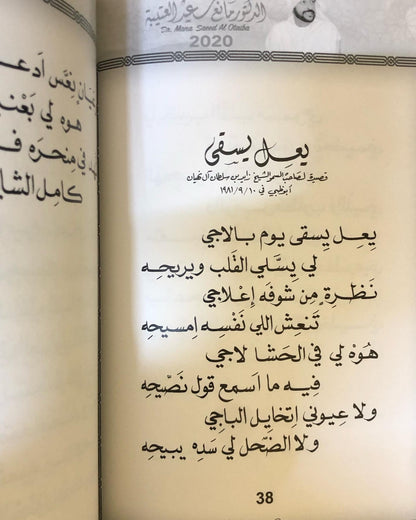 الدكتور مانع سعيد العتيبة
Dr. Mana Saeed Al Otaiba
2020
يعل يسقى
قصيدة لصاحب السمو الشيخ زايد بن سلطان آل نهيان
أبوظبي في ١٠/٩/١٩٨١
يعل يسقى يوم بالاجي
لي يسّلي القلب ويريحه
نظرةٍ من شوفه إعلاجي
تنعش اللي نفسه إمسيحه
هوه لي في الحشا لاجي
فيه ما اسمع قول نصّيحه
ولا عيوني إتخايل الباجي
ولا الضّحل لي سدّه يبيحه
38
إدعـ
هوه لي
في منحره
كامل